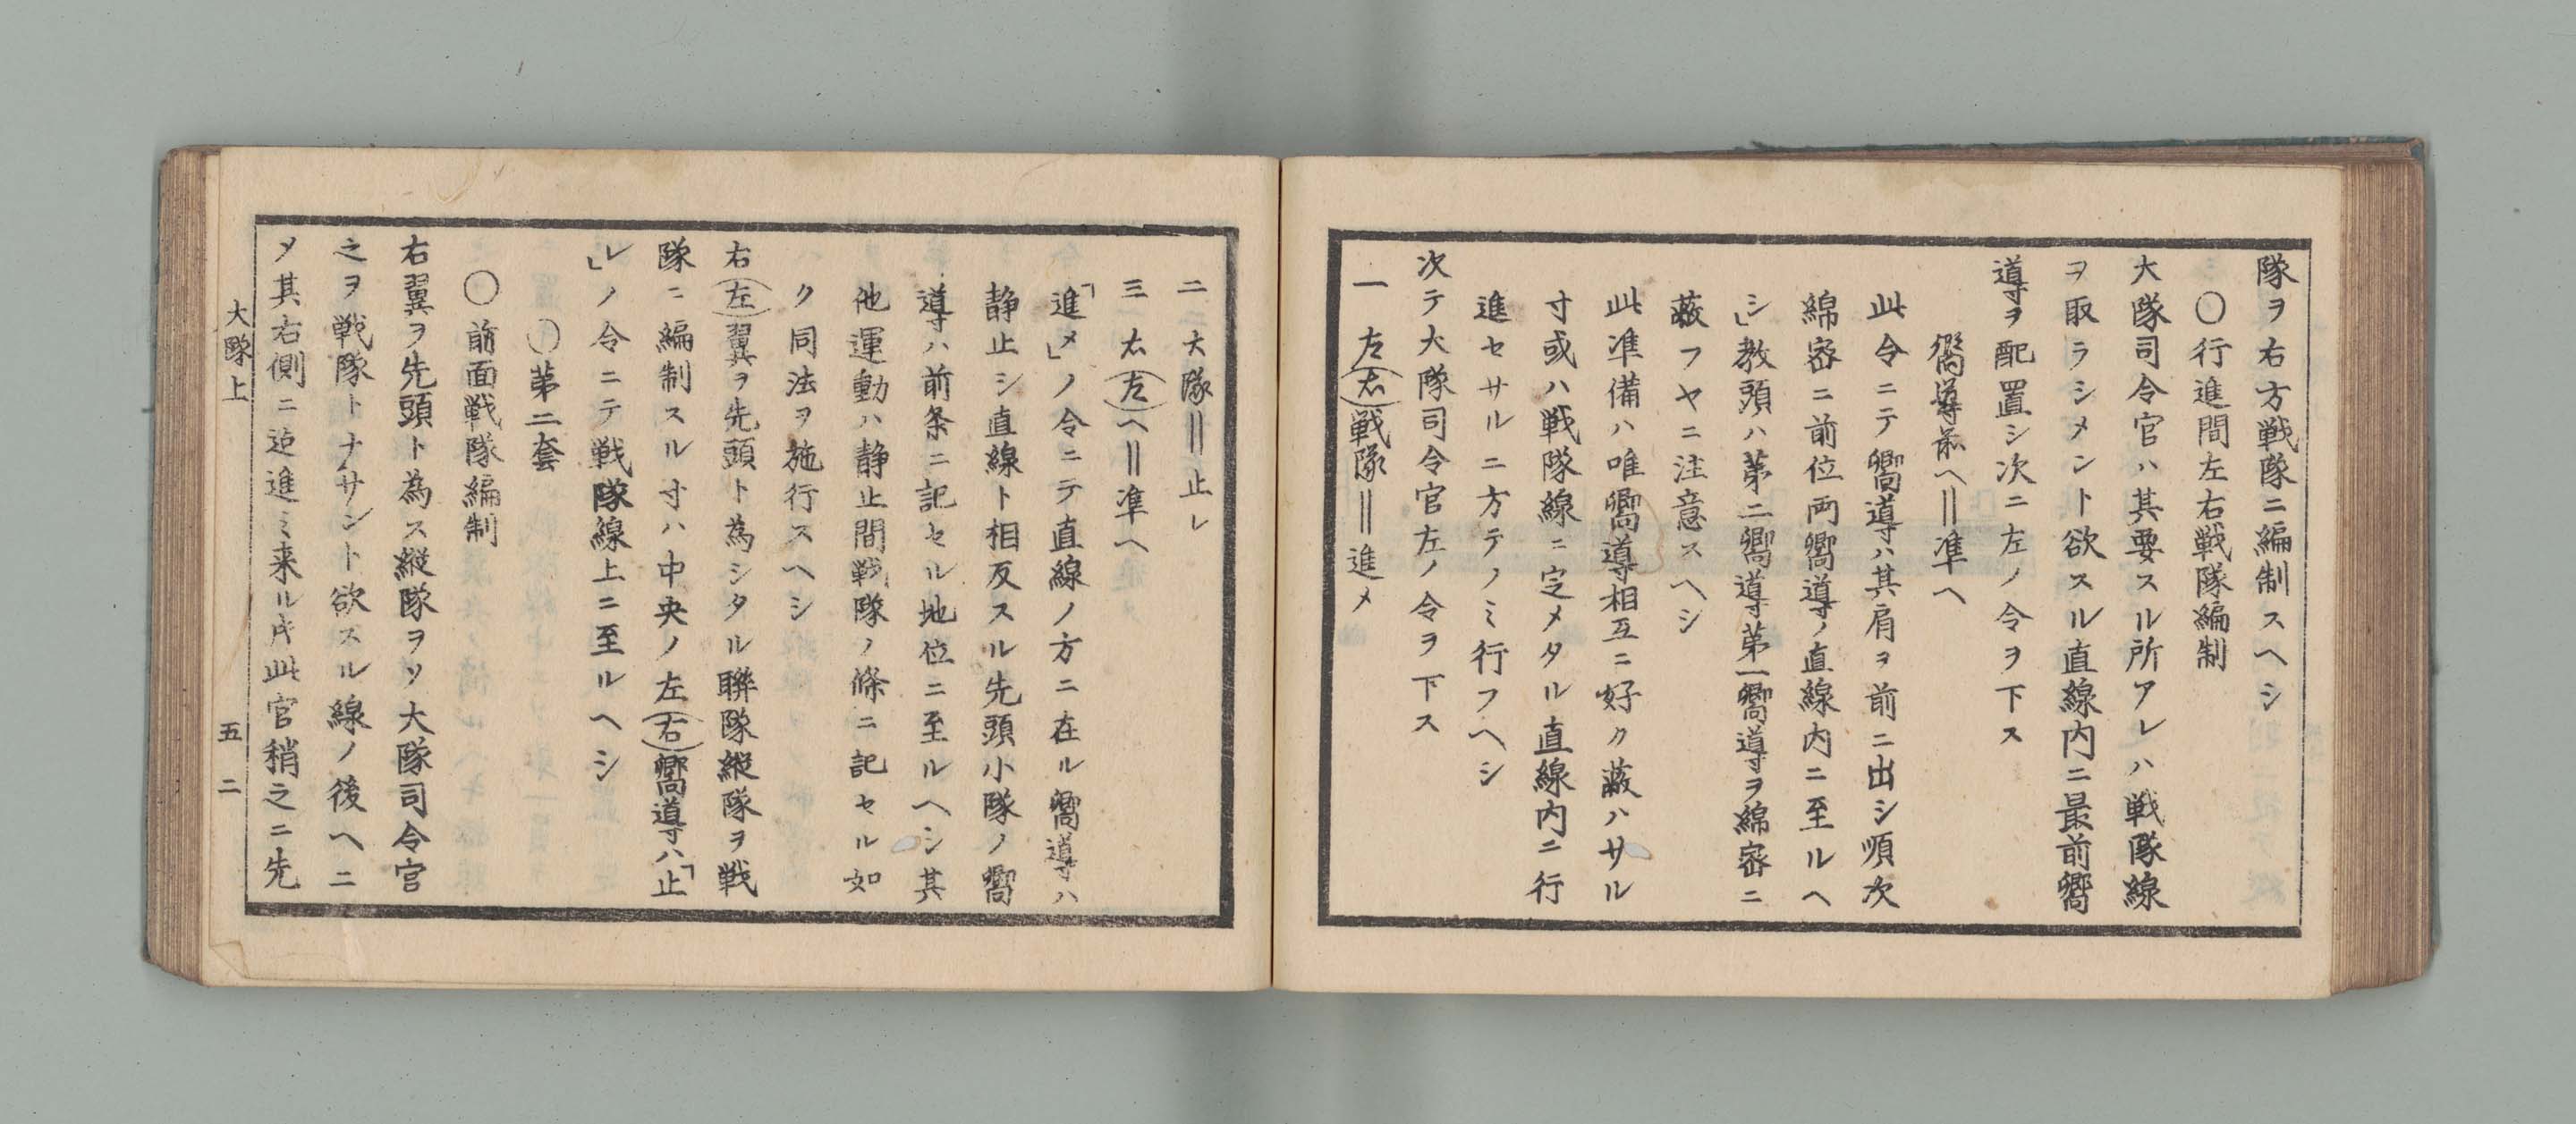 隊ヲ右方戦隊ニ編制スヘシ
〇行進間左右戦隊編制
大隊司令官ハ其要スル所アレハ戦隊線
ヲ取ラシメント欲スル直線内ニ最前嚮
導ヲ配置シ次ニ左ノ令ヲ下ス
嚮導前ヘ‖凖ヘ
此令ニテ嚮導ハ其肩ヲ前ニ出シ順次
綿密ニ前位両嚮導ノ直線内ニ至ルヘ
シ」教頭ハ第二嚮導第一嚮導ヲ綿密ニ
蔽フヤニ注意スヘシ
此凖備ハ唯嚮導相互ニ好ク蔽ハサル
寸或ハ戦隊線ニ定メタル直線内ニ行
進セサルニ方テノミ行フヘシ
次テ大隊司令官左ノ令ヲ下ス
一 左(右)戦隊‖進メ
二 大隊‖止レ
三 右(左)ヘ‖凖ヘ
「進メ」ノ令ニテ直線ノ方ニ在ル嚮導ハ
静止シ直線ト相反スル先頭小隊ノ嚮
導ハ前条ニ記セル地位ニ至ルヘシ其
他運動ハ静止間戦隊ノ條ニ記セル如
ク同法ヲ施行スヘシ
右(左)翼ヲ先頭ト為シタル聯隊縦隊ヲ戦
隊ニ編制スル寸ハ中央ノ左(右)嚮導ハ「止
レ」ノ令ニテ戦隊線上ニ至ルヘシ
〇第二套
〇前面戦隊編制
右翼ヲ先頭ト為ス縦隊ヲソ大隊司令官
之ヲ戦隊トナサント欲スル線ノ後ヘニ
メ其右側ニ迠進ミ来ル𪜈此官稍之ニ先
大隊上
五二